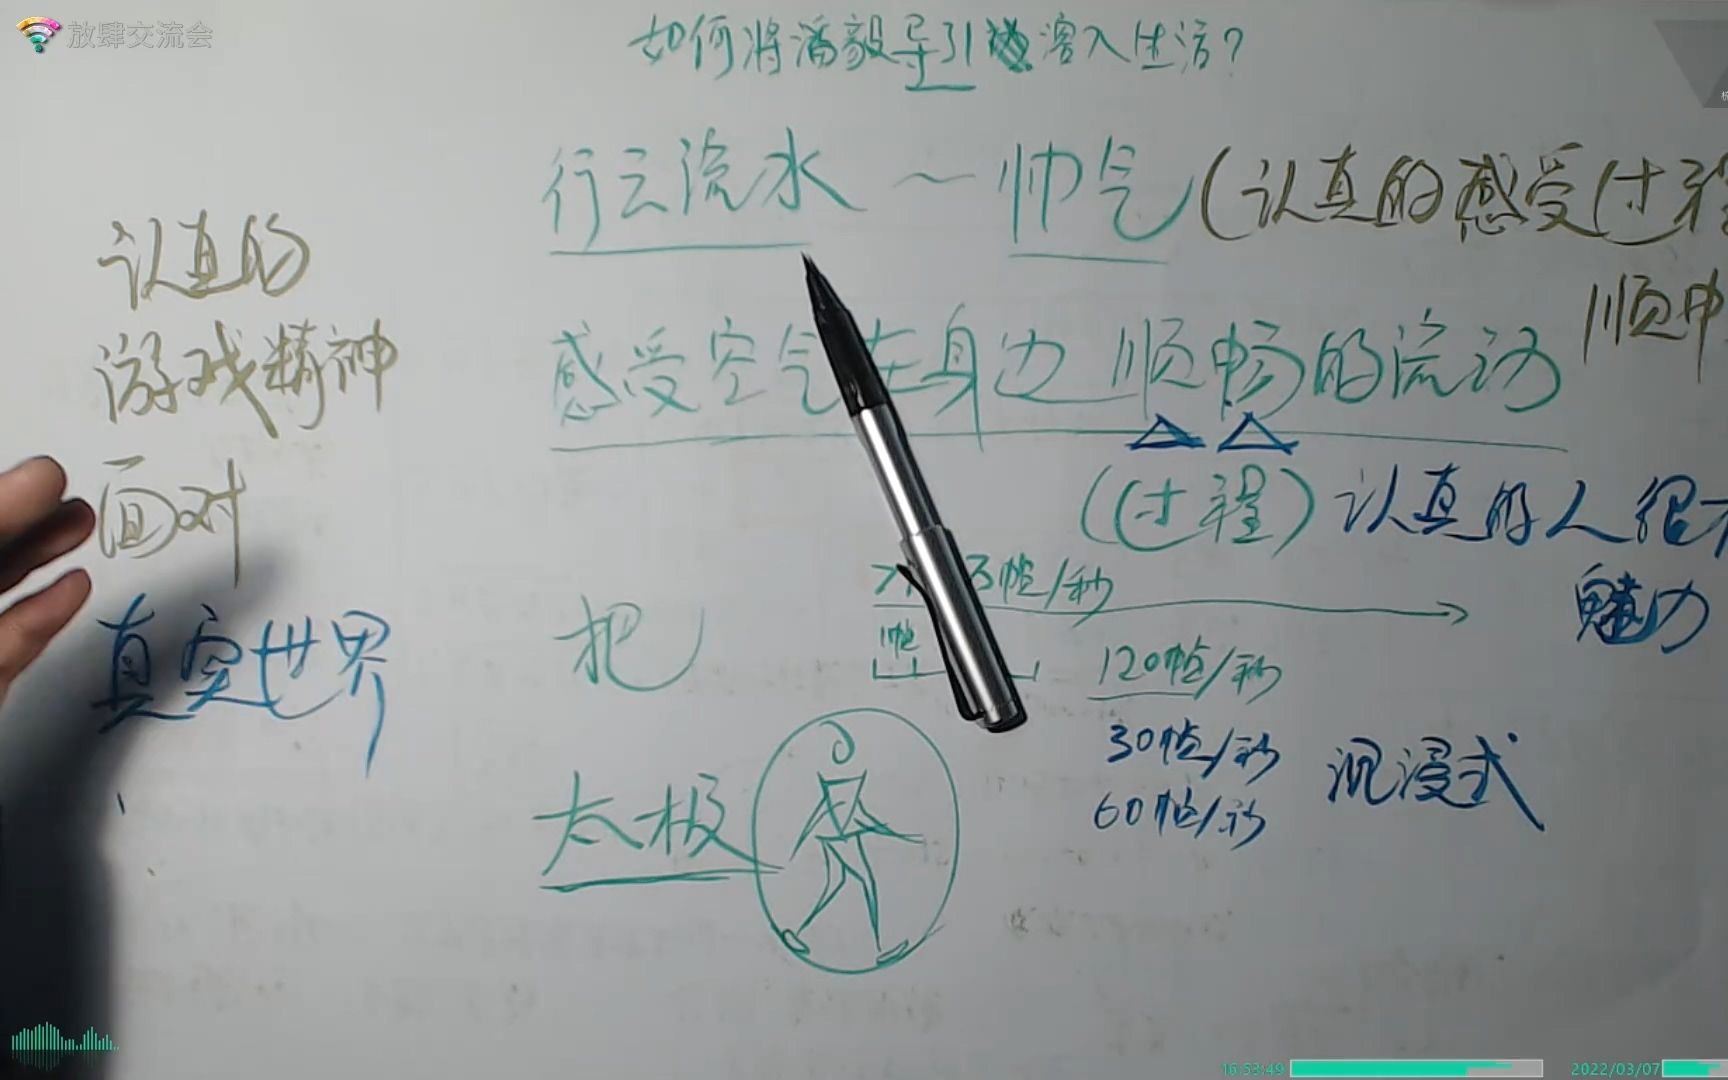 放肆交流会
如何将潘毅导引溶入生活?
行云流水~帅气(认真的感受过程
顺申
感受空气在身边顺畅的流动
(过程)认真的人很
魅力
认真的
游戏精神
面对
真实世界
帧/秒
1帧
120帧/秒
30帧/秒
60帧/秒
沉浸式
把
太极
16:53:49
2022/03/07